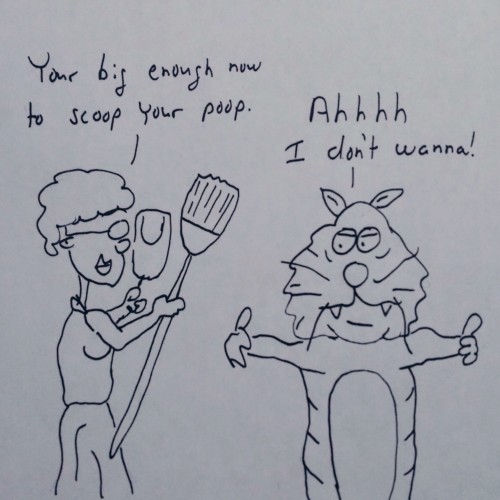 Your big enough now
to scoop your poop.
Ahhhh
I don't wanna!